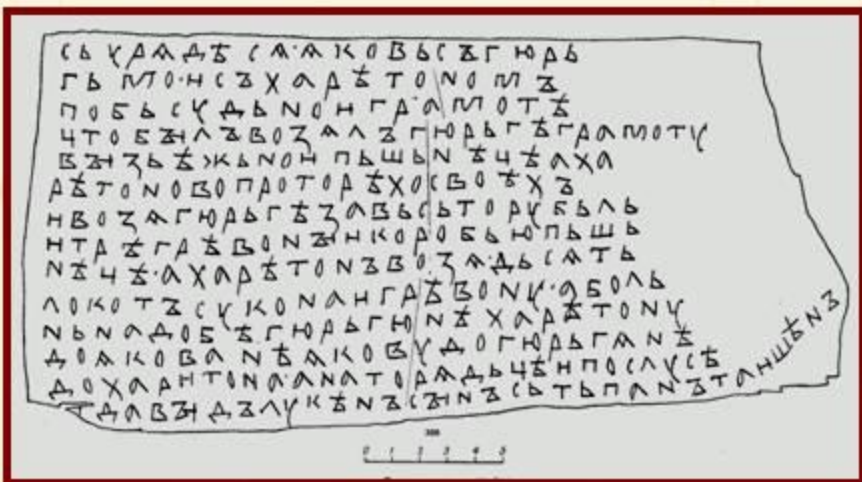 СЬ УРѦДѢ СѦ·ѦКОВЬ СЪ ГЮРЬ
ГЬМО·И СЪ ХАРѢТОНОМЪ
ПО БЬСУДЬНОИ ГРАМОТѢ
ЦТО БЪИЛЪ ВОЗѦЛЪ ГЮРЬГѢ ГРАМОТУ
ВЪИЗЬѢЖЬНОИ ПЬШЬНѢЦѢ А ХА
РѢТОНО ВО ПРОТОРѢХО СВОѢХЪ
И ВОЗѦ ГЮРЬГѢ ЗА ВЬСЬ ТО РУБЬЛЬ
И ТРѢ ГРѢВОНЪИ И КОРОБЬЮ ПЬШЬ
НѢЦѢ·А ХАРѢТОНЪ ВОЗѦ·ДЬСѦТЬ
ЛОКОТЪ СУКОНА И ГРѢВОНУ·А БОЛЬ
НЬ НАДОБѢ ГЮРЬГЮ НѢ ХАРѢТОНУ
ДО ѦКОВА НѢ ѦКОВУ ДО ГЮРЬГѦ НѢ
ДО ХАРИТОНА·А НА ТО РѦДЬЦѢ И ПОСЛУСѢ
ДАВЪИДЪ ЛУКѢНЪ СЪИНЪ СЬТЬПАНЪ ТАИШѢНЪ
0 1 2 3 4 5